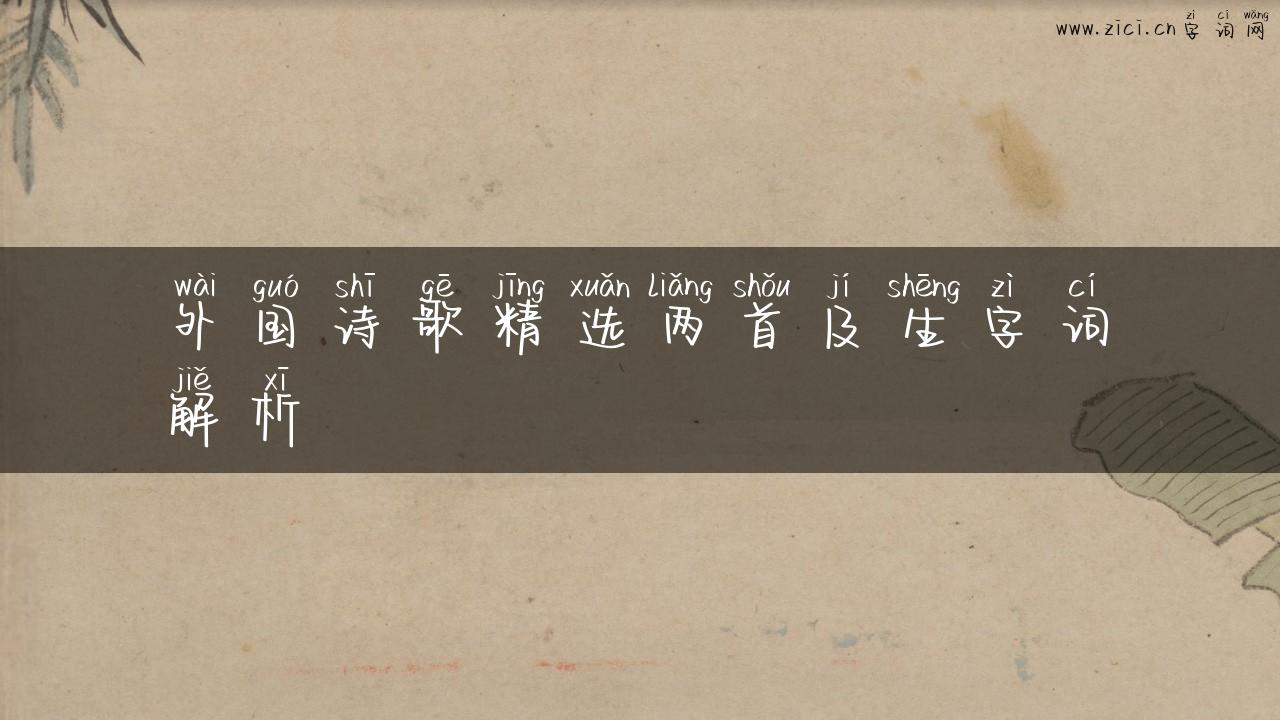 zì cí wǎng
www.zici.cn 字词网
wài guó shī gē jīng xuǎn liǎng shǒu jí shēng zì cí
外国诗歌精选两首及生字词
jiě xī
解析